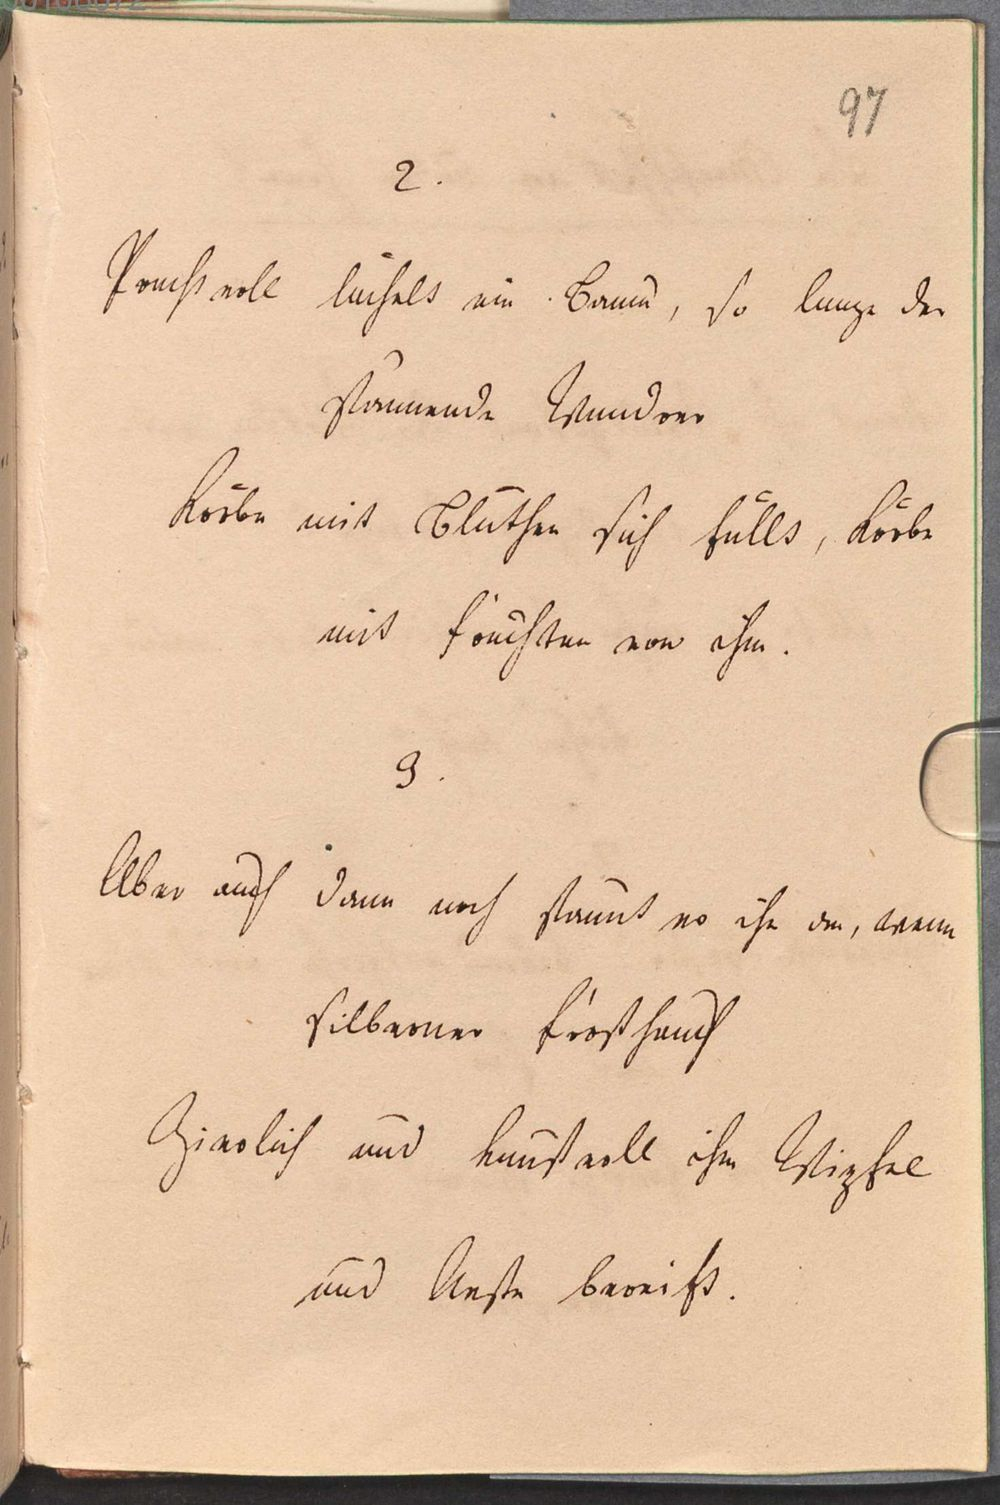 97
2.
Prachtvoll lächelt ein Baum, so lange der
staunende Wandrer
Körbe mit Blüthen sich füllt, Körbe
mit Früchten von ihm.
3.
Aber auch dann noch staunt er ihn an, wenn
silberner Frosthauch
Zierlich und kunstvoll ihm Wipfel
und Aeste bereift.